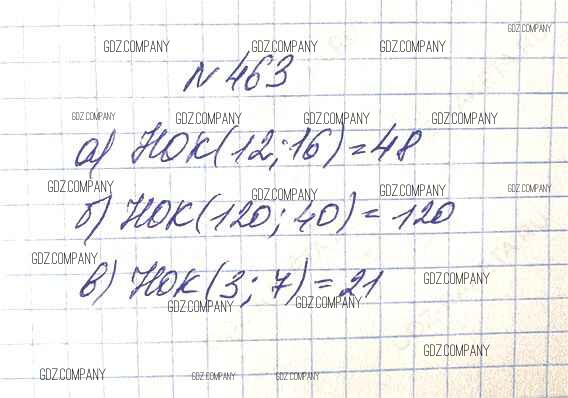 GDZ.COMPANY
GDZ.COMPANY GDZ.COMPANY GDZ.COMPANY
N 463
GDZ.COMPANY GDZ.COMPANY GDZ.COMPANY GDZ.COMPANY
а) НОК(12;16)=48
GDZ.COMPANY GDZ.COMPANY GDZ.COMPANY GDZ.COMPANY
б) НОК(120; 40) = 120
GDZ.COMPANY
в) НОК(3; 7) = 21
GDZ.COMPANY
GDZ.COMPANY GDZ.COMPANY
GDZ.COMPANY
GDZ.COMPANY GDZ.COMPANY GDZ.COMPANY